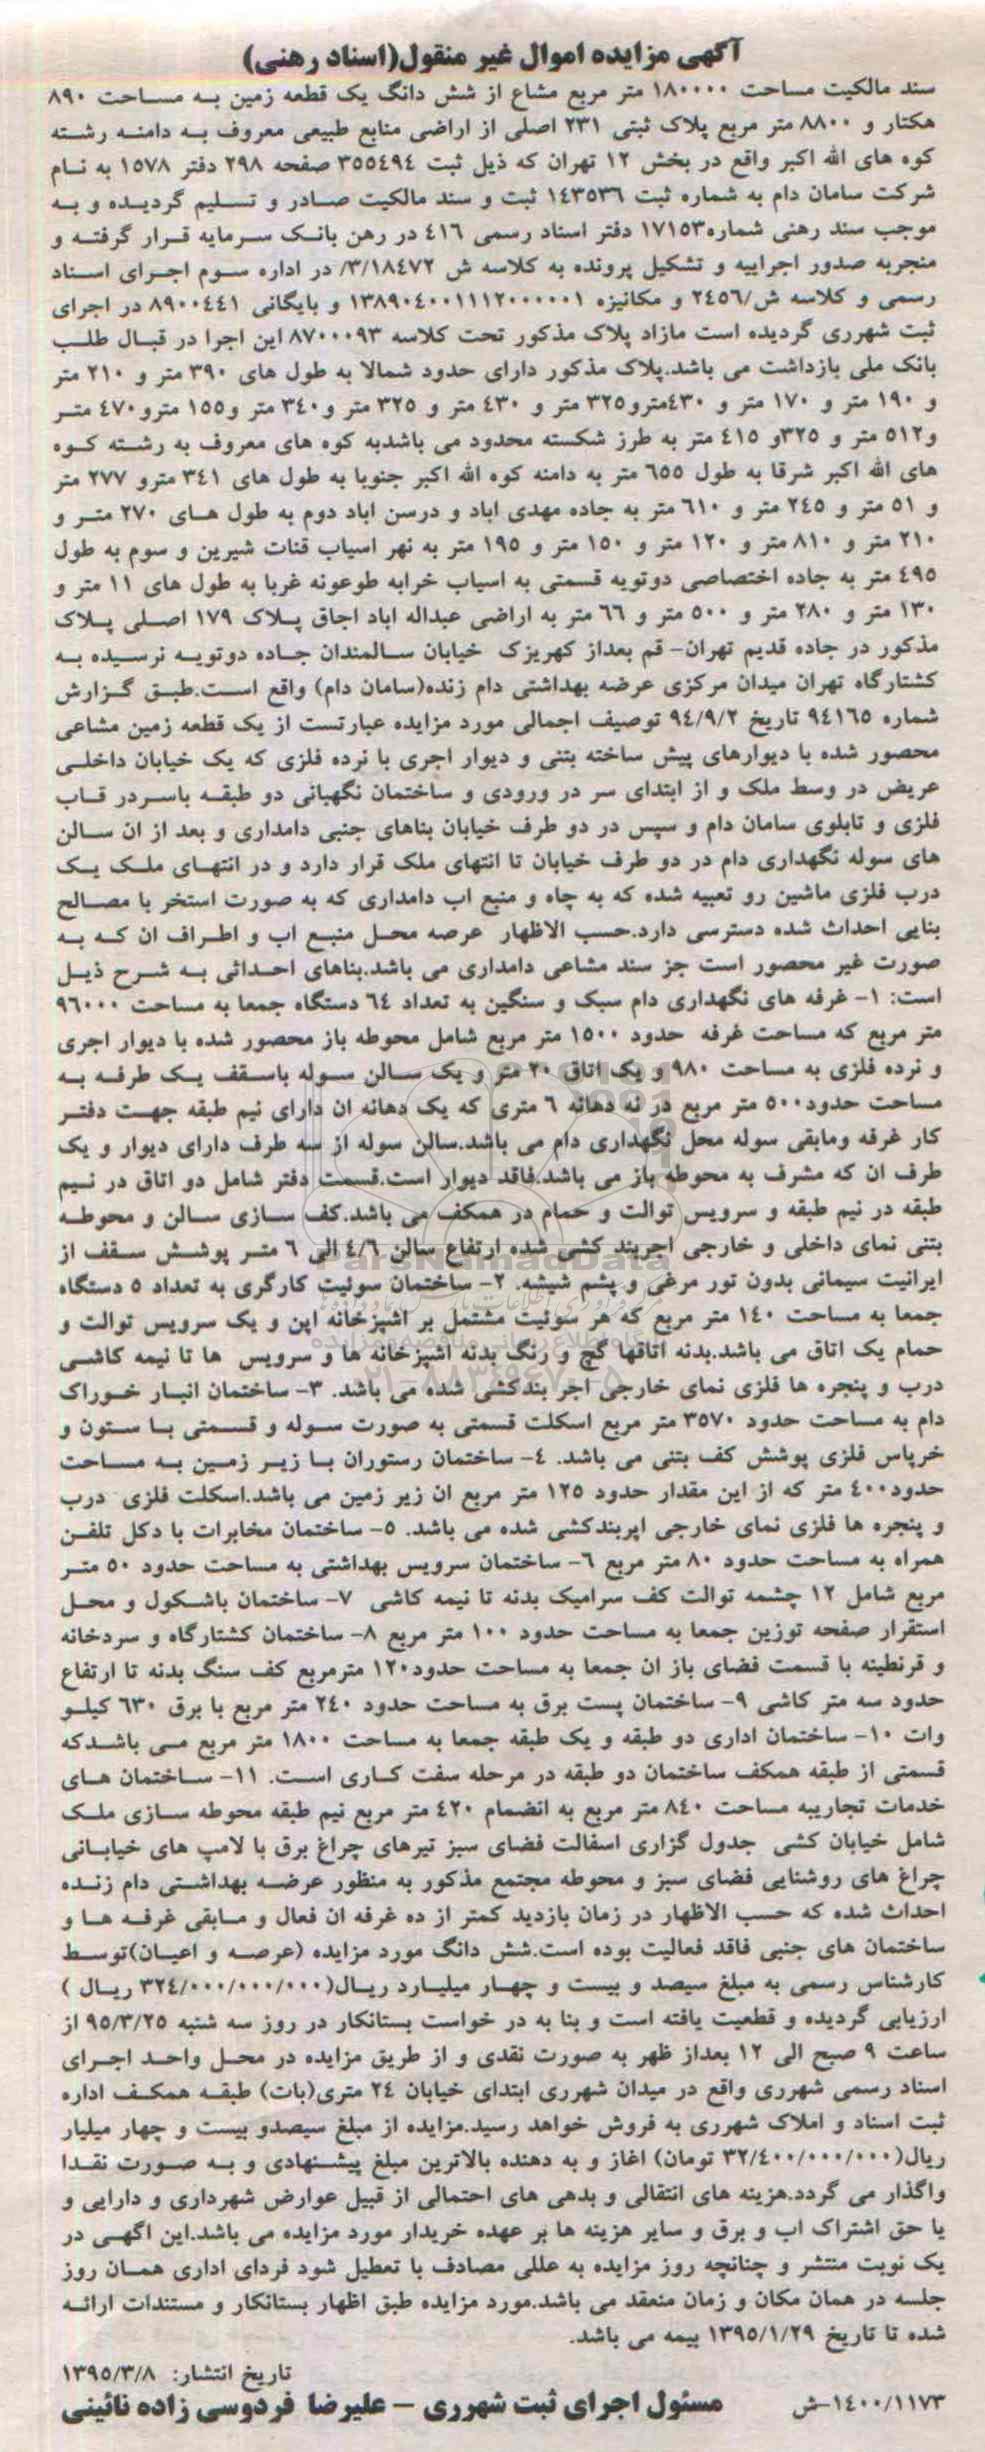 آگهی مزایده اموال غیر منقول(اسناد رهنی)
سند مالکیت مساحت ۱۸۰۰۰۰ متر مربع مشاع از شش دانگ یک قطعه زمین به مساحت ۸۹۰
هکتار و ۸۸۰۰ متر مربع پلاک ثبتی ۲۳۱ اصلی از اراضی منابع طبیعی معروف به دامنه رشته
کوه های الله اکبر واقع در بخش ۱۲ تهران که ذیل ثبت ۳۵۵٤۹٤ صفحه ۲۹۸ دفتر ۱۵۷۸ به نام
شرکت سامان دام به شماره ثبت ۱٤۳۵۳٦ ثبت و سند مالکیت صادر و تسلیم گردیده و به
موجب سند رهنی شماره۱۷۱۵۳ دفتر اسناد رسمی ٤۱٦ در رهن بانک سرمایه قرار گرفته و
منجربه صدور اجراییه و تشکیل پرونده به کلاسه ش ۳/۱۸٤۷۲/ در اداره سوم اجرای اسناد
رسمی و کلاسه ش/۲٤۵٦ و مکانیزه ۱۳۸۹۰٤۰۰۱۱۱۲۰۰۰۰۰۱ و بایگانی ۸۹۰۰٤٤۱ در اجرای
ثبت شهرری گردیده است مازاد پلاک مذکور تحت کلاسه ۸۷۰۰۰۹۳ این اجرا در قبال طلب
بانک ملی بازداشت می باشد.پلاک مذکور دارای حدود شمالا به طول های ۳۹۰ متر و ۲۱۰ متر
و ۱۹۰ متر و ۱۷۰ متر و ٤۳۰مترو۳۲۵ متر و ٤۳۰ متر و ۳۲۵ متر و۳٤۰ متر و۱۵۵ مترو٤۷۰ متر
و۵۱۲ متر و ۳۲۵و ٤۱۵ متر به طرز شکسته محدود می باشدبه کوه های معروف به رشته کوه
های الله اکبر شرقا به طول ٦۵۵ متر به دامنه کوه الله اکبر جنوبا به طول های ۳٤۱ مترو ۲۷۷ متر
و ۵۱ متر و ۲٤۵ متر و ٦۱۰ متر به جاده مهدی اباد و درسن اباد دوم به طول های ۲۷۰ متر و
۲۱۰ متر و ۸۱۰ متر و ۱۲۰ متر و ۱۵۰ متر و ۱۹۵ متر به نهر اسیاب قنات شیرین و سوم به طول
٤۹۵ متر به جاده اختصاصی دوتویه قسمتی به اسیاب خرابه طوعونه غربا به طول های ۱۱ متر و
۱۳۰ متر و ۲۸۰ متر و ۵۰۰ متر و ٦٦ متر به اراضی عبداله اباد اجاق پلاک ۱۷۹ اصلی پلاک
مذکور در جاده قدیم تهران- قم بعداز کهریزک خیابان سالمندان جاده دوتویه نرسیده به
کشتارگاه تهران میدان مرکزی عرضه بهداشتی دام زنده(سامان دام) واقع است.طبق گزارش
شماره ۹٤۱٦۵ تاریخ ۹٤/۹/۲ توصیف اجمالی مورد مزایده عبارتست از یک قطعه زمین مشاعی
محصور شده با دیوارهای پیش ساخته بتنی و دیوار اجری با نرده فلزی که یک خیابان داخلی
عریض در وسط ملک و از ابتدای سر در ورودی و ساختمان نگهبانی دو طبقه باسردر قاب
فلزی و تابلوی سامان دام و سپس در دو طرف خیابان بناهای جنبی دامداری و بعد از ان سالن
های سوله نگهداری دام در دو طرف خیابان تا انتهای ملک قرار دارد و در انتهای ملک یک
درب فلزی ماشین رو تعبیه شده که به چاه و منبع اب دامداری که به صورت استخر با مصالح
بنایی احداث شده دسترسی دارد.حسب الاظهار عرصه محل منبع اب و اطراف ان که به
صورت غیر محصور است جز سند مشاعی دامداری می باشد.بناهای احداثی به شرح ذیل
است: ۱- غرفه های نگهداری دام سبک و سنگین به تعداد ٦٤ دستگاه جمعا به مساحت ۹٦۰۰۰
متر مربع که مساحت غرفه حدود ۱۵۰۰ متر مربع شامل محوطه باز محصور شده با دیوار اجری
و نرده فلزی به مساحت ۹۸۰ و یک اتاق ۲۰ متر و یک سالن سوله باسقف یک طرفه به
مساحت حدود۵۰۰ متر مربع در نه دهانه ٦ متری که یک دهانه ان دارای نیم طبقه جهت دفتر
کار غرفه ومابقی سوله محل نگهداری دام می باشد.سالن سوله از سه طرف دارای دیوار و یک
طرف ان که مشرف به محوطه باز می باشد.فاقد دیوار است.قسمت دفتر شامل دو اتاق در نیم
طبقه در نیم طبقه و سرویس توالت و حمام در همکف می باشد.کف سازی سالن و محوطه
بتنی نمای داخلی و خارجی اجربند کشی شده ارتفاع سالن ٤/٦ الی ٦ متر پوشش سقف از
ایرانیت سیمانی بدون تور مرغی و پشم شیشه. ۲- ساختمان سوئیت کارگری به تعداد ۵ دستگاه
جمعا به مساحت ۱٤۰ متر مربع که هر سوئیت مشتمل بر اشپزخانه اپن و یک سرویس توالت و
حمام یک اتاق می باشد.بدنه اتاقها گچ و رنگ بدنه اشپزخانه ها و سرویس ها تا نیمه کاشی
درب و پنجره ها فلزی نمای خارجی اجر بندکشی شده می باشد. ۳- ساختمان انبار خوراک
دام به مساحت حدود ۳۵۷۰ متر مربع اسکلت قسمتی به صورت سوله و قسمتی با ستون و
خرپاس فلزی پوشش کف بتنی می باشد. ٤- ساختمان رستوران با زیر زمین به مساحت
حدود٤۰۰ متر که از این مقدار حدود ۱۲۵ متر مربع ان زیر زمین می باشد.اسکلت فلزی درب
و پنجره ها فلزی نمای خارجی اپربندکشی شده می باشد. ۵- ساختمان مخابرات با دکل تلفن
همراه به مساحت حدود ۸۰ متر مربع ٦- ساختمان سرویس بهداشتی به مساحت حدود ۵۰ متر
مربع شامل ۱۲ چشمه توالت کف سرامیک بدنه تا نیمه کاشی ۷- ساختمان باشکول و محل
استقرار صفحه توزین جمعا به مساحت حدود ۱۰۰ متر مربع ۸- ساختمان کشتارگاه و سردخانه
و قرنطینه با قسمت فضای باز ان جمعا به مساحت حدود۱۲۰ مترمربع کف سنگ بدنه تا ارتفاع
حدود سه متر کاشی ۹- ساختمان پست برق به مساحت حدود ۲٤۰ متر مربع با برق ٦۳۰ کیلو
وات ۱۰- ساختمان اداری دو طبقه و یک طبقه جمعا به مساحت ۱۸۰۰ متر مربع می باشدکه
قسمتی از طبقه همکف ساختمان دو طبقه در مرحله سفت کاری است. ۱۱- ساختمان های
خدمات تجاریبه مساحت ۸٤۰ متر مربع به انضمام ٤۲۰ متر مربع نیم طبقه محوطه سازی ملک
شامل خیابان کشی جدول گزاری اسفالت فضای سبز تیرهای چراغ برق با لامپ های خیابانی
چراغ های روشنایی فضای سبز و محوطه مجتمع مذکور به منظور عرضه بهداشتی دام زنده
احداث شده که حسب الاظهار در زمان بازدید کمتر از ده غرفه ان فعال و مابقی غرفه ها و
ساختمان های جنبی فاقد فعالیت بوده است.شش دانگ مورد مزایده (عرصه و اعیان)توسط
کارشناس رسمی به مبلغ سیصد و بیست و چهار میلیارد ریال(۳۲٤/۰۰۰/۰۰۰/۰۰۰ ریال )
ارزیابی گردیده و قطعیت یافته است و بنا به در خواست بستانکار در روز سه شنبه ۹۵/۳/۲۵ از
ساعت ۹ صبح الی ۱۲ بعداز ظهر به صورت نقدی و از طریق مزایده در محل واحد اجرای
اسناد رسمی شهرری واقع در میدان شهرری ابتدای خیابان ۲٤ متری(بات) طبقه همکف اداره
ثبت اسناد و املاک شهرری به فروش خواهد رسید.مزایده از مبلغ سیصدو بیست و چهار میلیار
ریال(۳۲/٤۰۰/۰۰۰/۰۰۰ تومان) اغاز و به دهنده بالاترین مبلغ پیشنهادی و به صورت نقدا
واگذار می گردد.هزینه های انتقالی و بدهی های احتمالی از قبیل عوارض شهرداری و دارایی و
یا حق اشتراک اب و برق و سایر هزینه ها بر عهده خریدار مورد مزایده می باشد.این اگهی در
یک نوبت منتشر و چنانچه روز مزایده به عللی مصادف با تعطیل شود فردای اداری همان روز
جلسه در همان مکان و زمان منعقد می باشد.مورد مزایده طبق اظهار بستانکار و مستندات ارائه
شده تا تاریخ ۱۳۹۵/۱/۲۹ بیمه می باشد.
تاریخ انتشار: ۱۳۹۵/۳/۸
۱٤۰۰/۱۱۷۳-ش مسئول اجرای ثبت شهرری – علیرضا فردوسی زاده نائینی
ParsNamadData